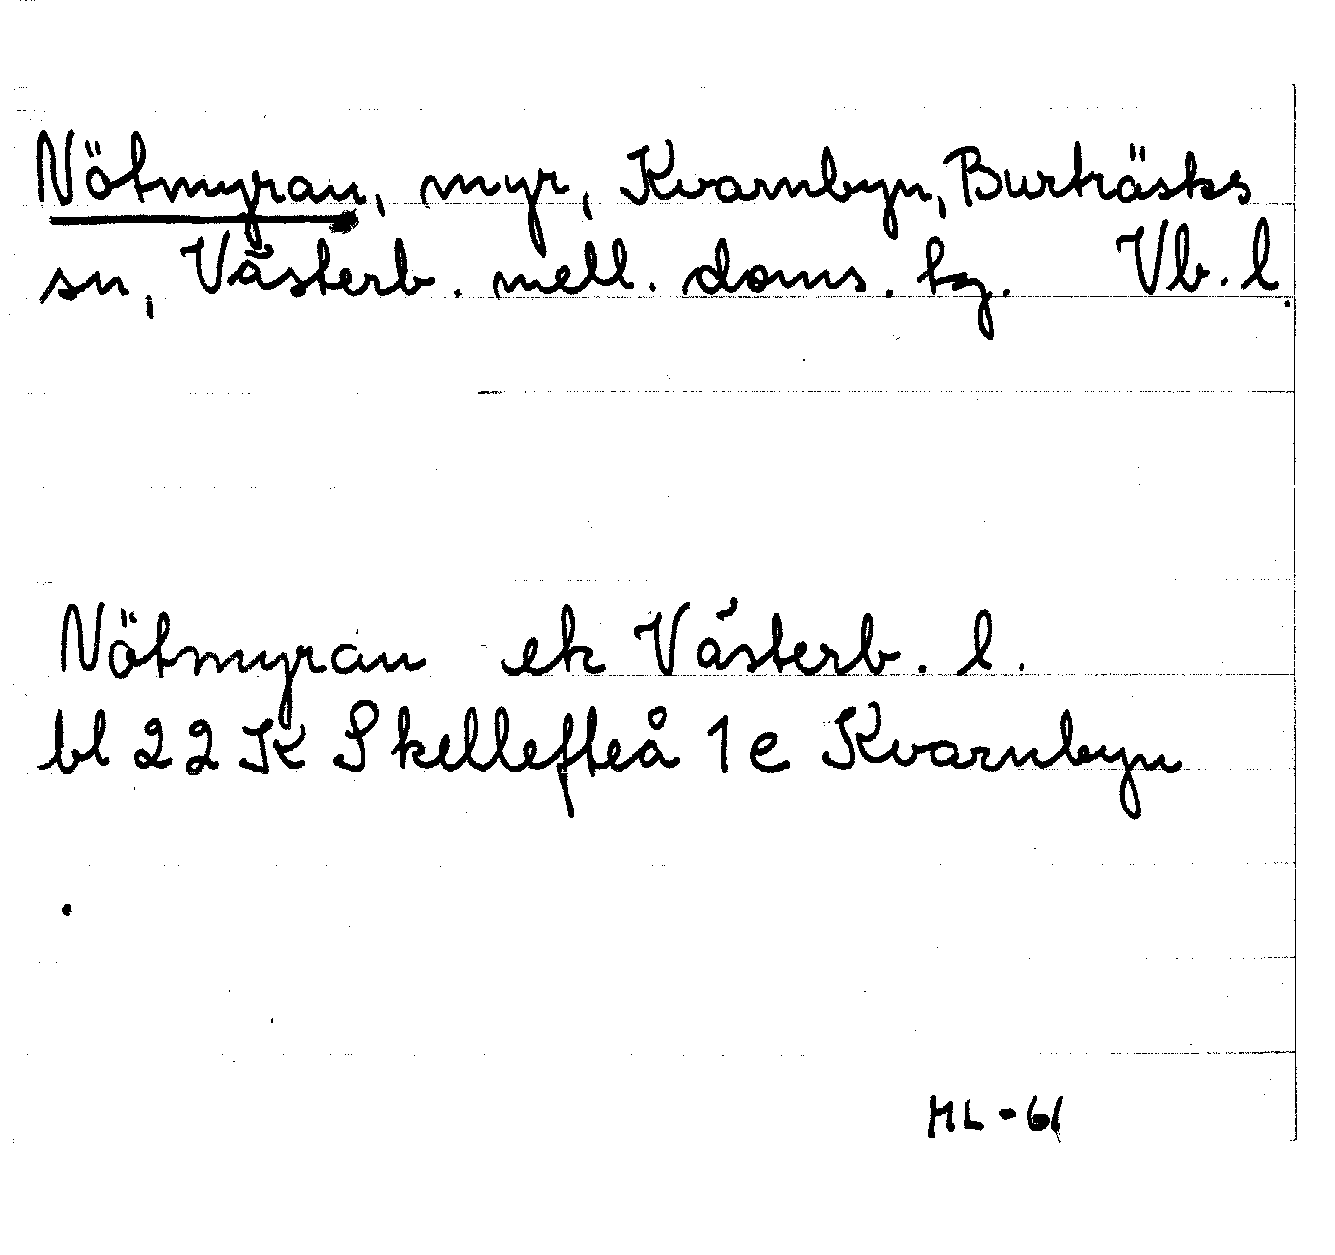 Nötmyran, myr, Kvarnbyn, Burträsks
sn, Västerb. mell. doms. tg. Vb. l.
Nötmyran ek Västerb. l.
bl 22 K Skellefteå 1e Kvarnbyn
ML - 61